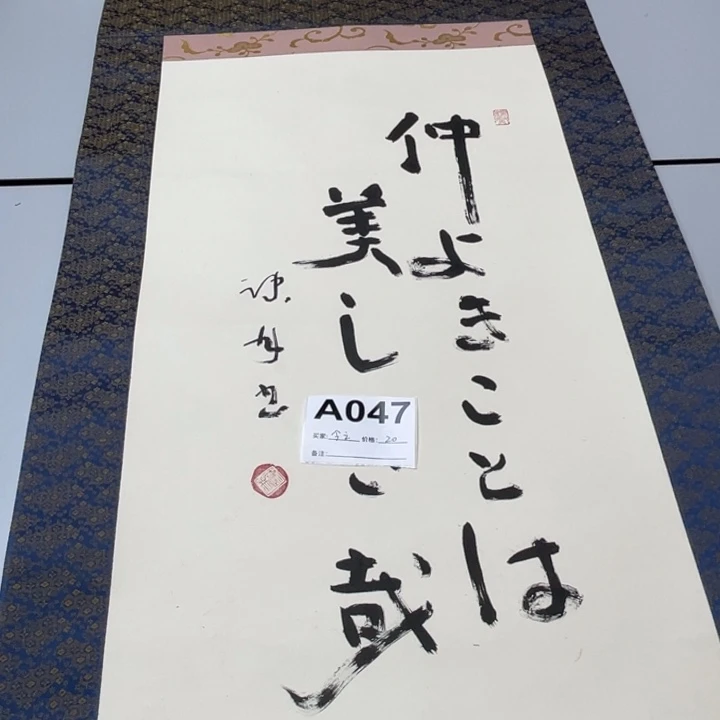 仲よきことは
美し
哉
A047
买家: 价格: 20
备注: